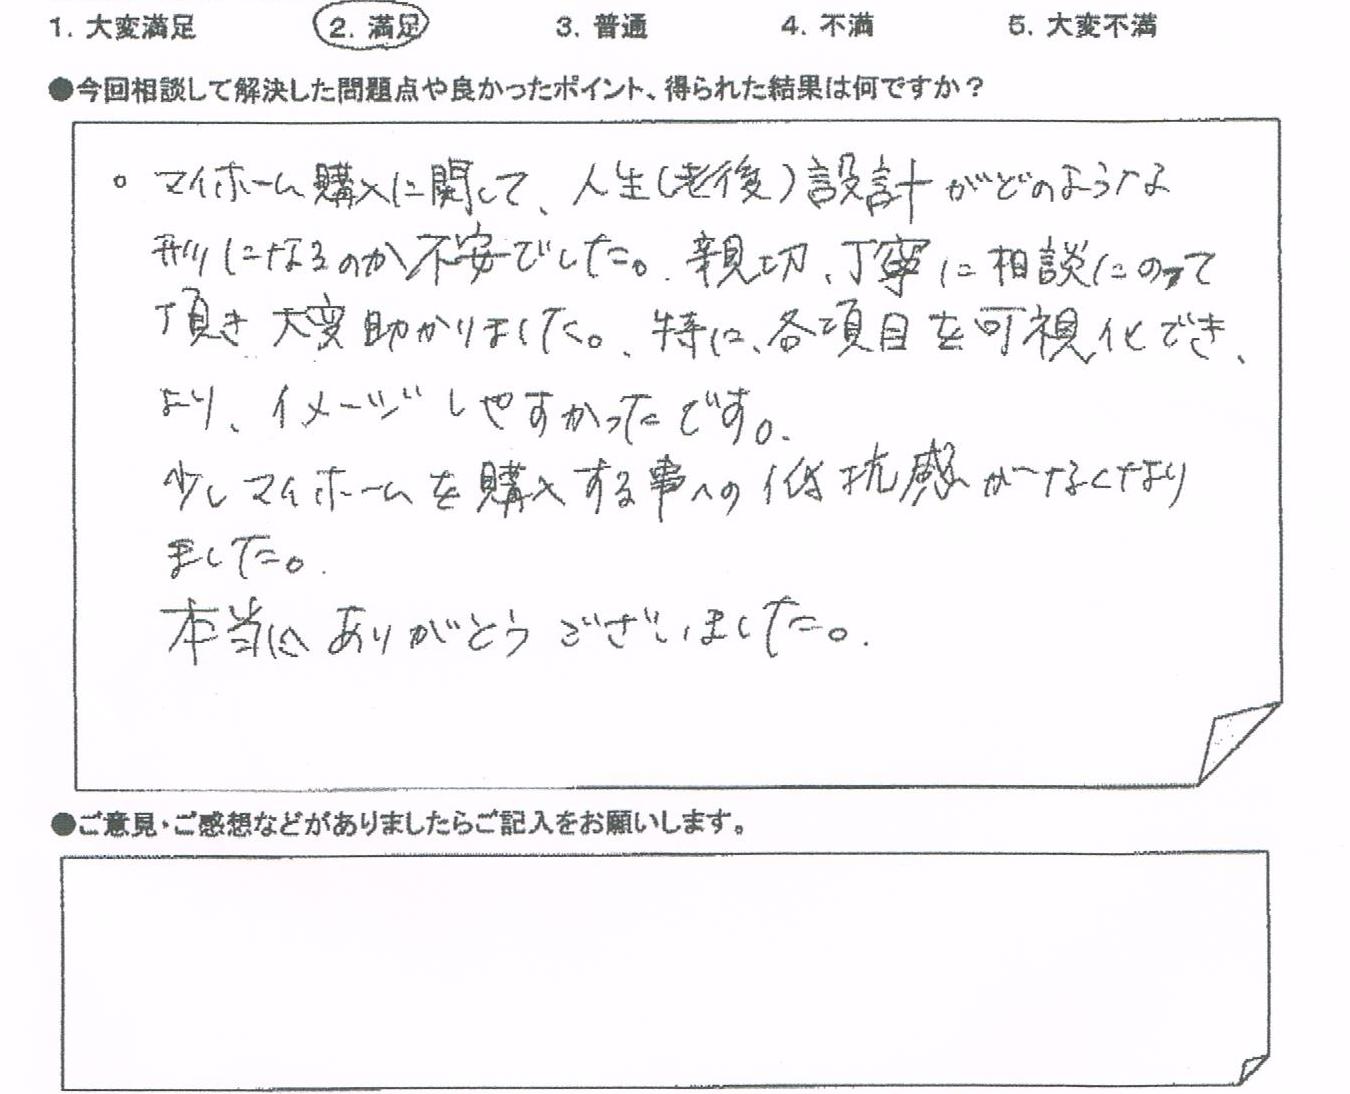 1. 大変満足 2. 満足 3. 普通 4. 不満 5. 大変不満
●今回相談して解決した問題点や良かったポイント、得られた結果は何ですか？
。マイホーム購入に関して、人生(老後)設計がどのような
形になるのか不安でした。親切、丁寧に相談にのって
頂き大変助かりました。特に、各項目を可視化でき、
より、イメージしやすかったです。
少しマイホームを購入する事への低抗感がなくなり
ました。
本当にありがとうございました。
●ご意見・ご感想などがありましたらご記入をお願いします。